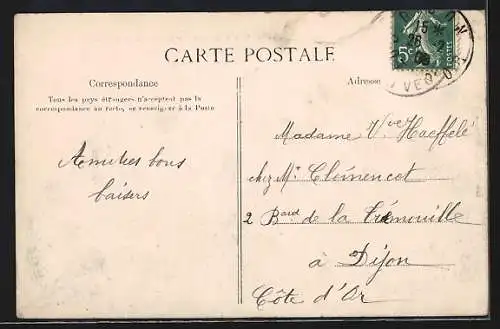 CARTE POSTALE
Correspondance
Adresse
Tous les pays étrangers n'acceptent pas la
correspondance au recto, se renseigner à la Poste
Amitiés bons
baisers
Madame Vve Haeffelé
chez Mr Clémencet
2 Bard de la Trémouille
à Dijon
Côte d'Or
5c
POSTES